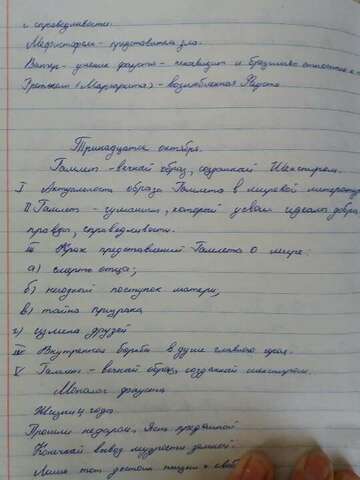 и справедливости.
Мефистофель - представитель зла.
Вагнер - ученик фауста - ненавидит и брезгливо относится к
Гретхен (Маргарита) - возлюбленная Фауста
Тринадцатое октября.
Гамлет - вечный образ, созданный Шекспиром.
I Актуальность образа Гамлета в мировой литературе
II Гамлет - гуманист, который усвоил идеалы добра,
правды, справедливости.
III Крах представлений Гамлета о мире:
а) смерть отца;
б) негодный поступок матери;
в) тайна призрака
г) измена друзей
IV Внутренняя борьба в душе главного героя.
V Гамлет - вечный образ, созданный шекспиром.
Монолог фауста
Жизни годы
Прошли недаром, ясен предо мной
Конечный вывод мудрости земной.
Лишь тот достоин жизни и своб